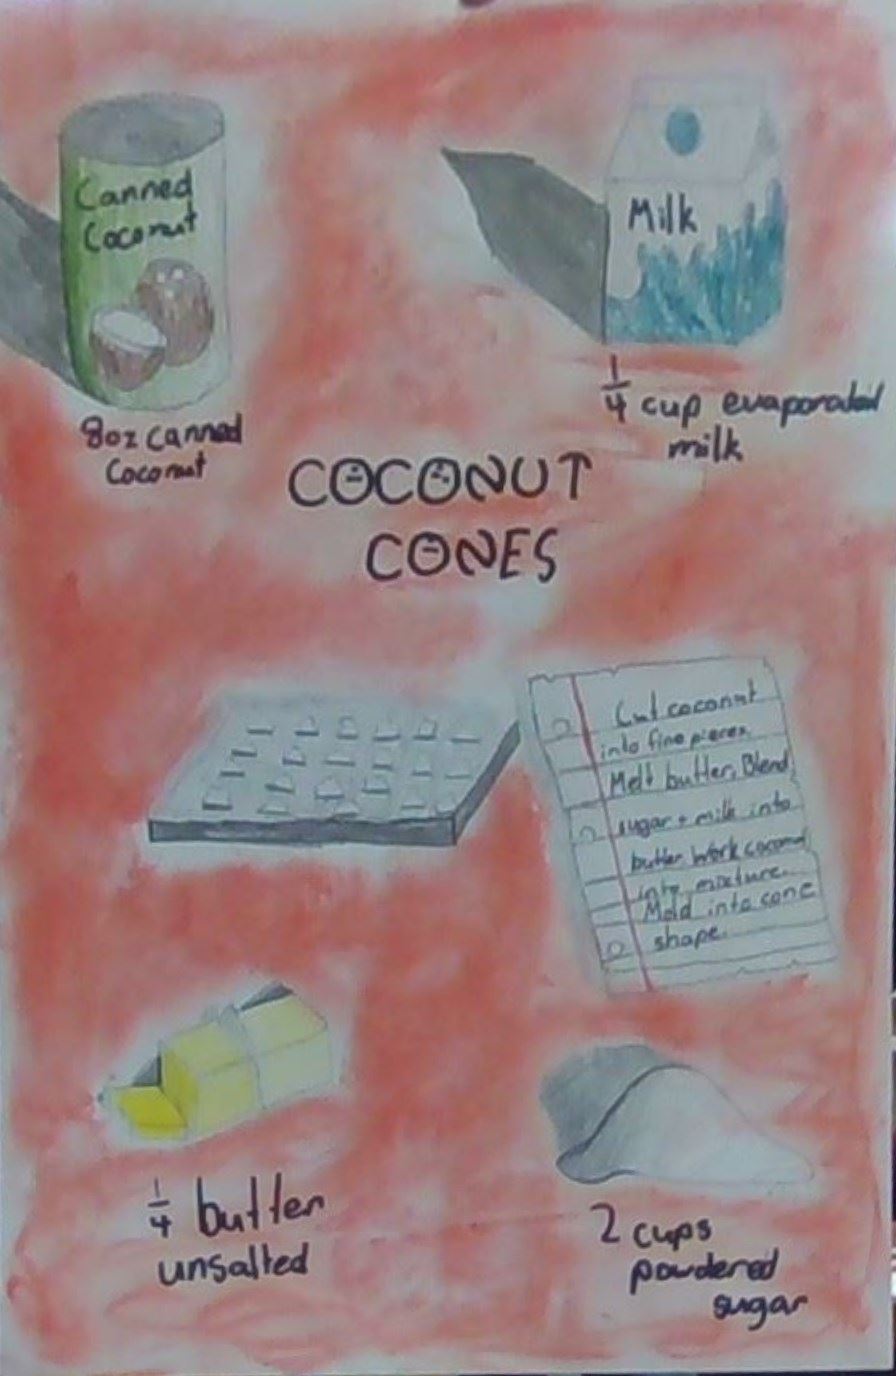 Canned
Coconut
Milk
8oz canned
Coconut
1/4 cup evaporated
milk
COCONUT
CONES
Cut coconut
into fine pieces.
Melt butter. Blend
sugar + milk into
butter. Work coconut
into mixture.
Mold into cone
shape.
1/4 butter
unsalted
2 cups
powdered
sugar